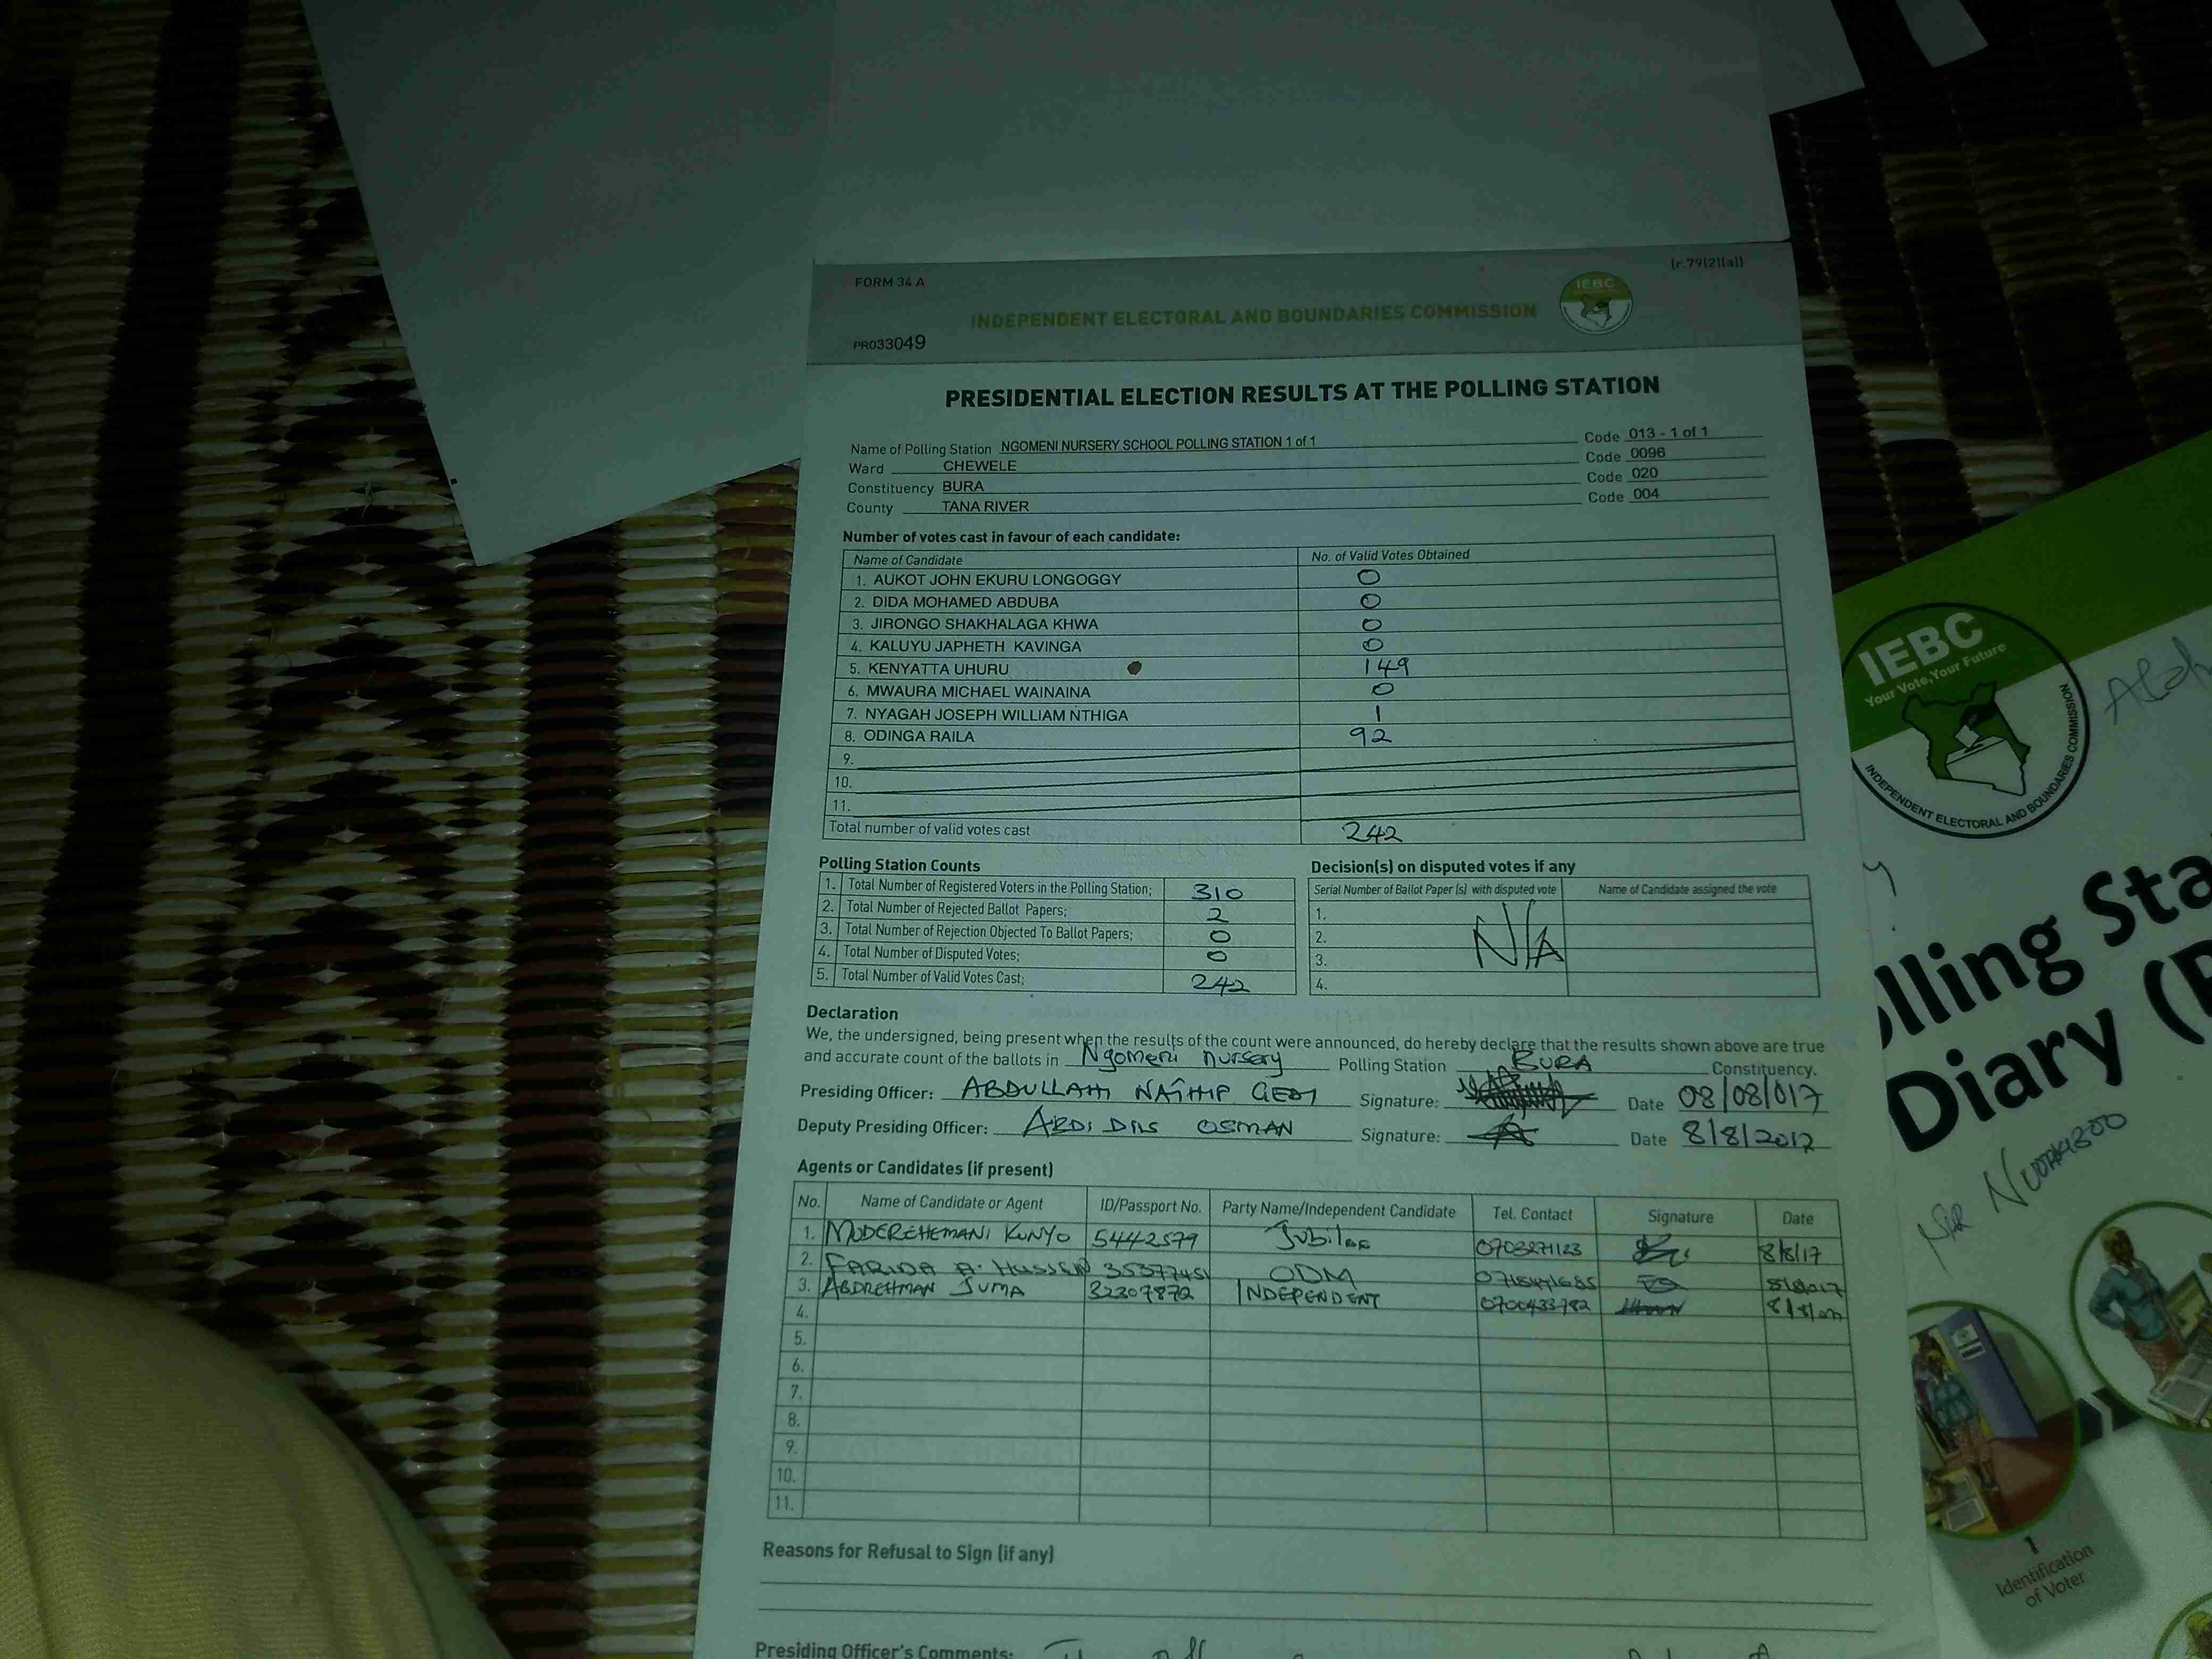 FORM 34 A
(r.79(2)(a))
INDEPENDENT ELECTORAL AND BOUNDARIES COMMISSION
IEBC
PR033049
PRESIDENTIAL ELECTION RESULTS AT THE POLLING STATION
Name of Polling Station NGOMENI NURSERY SCHOOL POLLING STATION 1 of 1 Code 013 - 1 of 1
Ward CHEWELE Code 0096
Constituency BURA Code 020
County TANA RIVER Code 004
Number of votes cast in favour of each candidate:
Name of Candidate No. of Valid Votes Obtained
1. AUKOT JOHN EKURU LONGOGGY 0
2. DIDA MOHAMED ABDUBA 0
3. JIRONGO SHAKHALAGA KHWA 0
4. KALUYU JAPHETH KAVINGA 0
5. KENYATTA UHURU 149
6. MWAURA MICHAEL WAINAINA 0
7. NYAGAH JOSEPH WILLIAM NTHIGA 1
8. ODINGA RAILA 92
9.
10.
11.
Total number of valid votes cast 242
Polling Station Counts
1. Total Number of Registered Voters in the Polling Station; 310
2. Total Number of Rejected Ballot Papers; 2
3. Total Number of Rejection Objected To Ballot Papers; 0
4. Total Number of Disputed Votes; 0
5. Total Number of Valid Votes Cast; 242
Decision(s) on disputed votes if any
Serial Number of Ballot Paper (s) with disputed vote Name of Candidate assigned the vote
1.
2. N/A
3.
4.
Declaration
We, the undersigned, being present when the results of the count were announced, do hereby declare that the results shown above are true
and accurate count of the ballots in Ngomeni nursery Polling Station BURA Constituency.
Presiding Officer: ABDULLAHI Signature: Date 08/08/017
Deputy Presiding Officer: ABDI OSMAN Signature: Date 8/8/2017
Agents or Candidates (if present)
No. Name of Candidate or Agent ID/Passport No. Party Name/Independent Candidate Tel. Contact Signature Date
1. MODEREHEMANI KUNYO 5442579 Jubilee 0703271123 8/8/17
2. FARIDA A. HUSSEIN 35377451 ODM
3. ABDREHMAN JUMA 32307872 INDEPENDENT 0700433782
4.
5.
6.
7.
8.
9.
10.
11.
Reasons for Refusal to Sign (if any)
Presiding Officer's Comments:
IEBC
Your Vote, Your Future
INDEPENDENT ELECTORAL AND BOUNDARIES COMMISSION
lling Sta
Diary (
1
Identification
of Voter